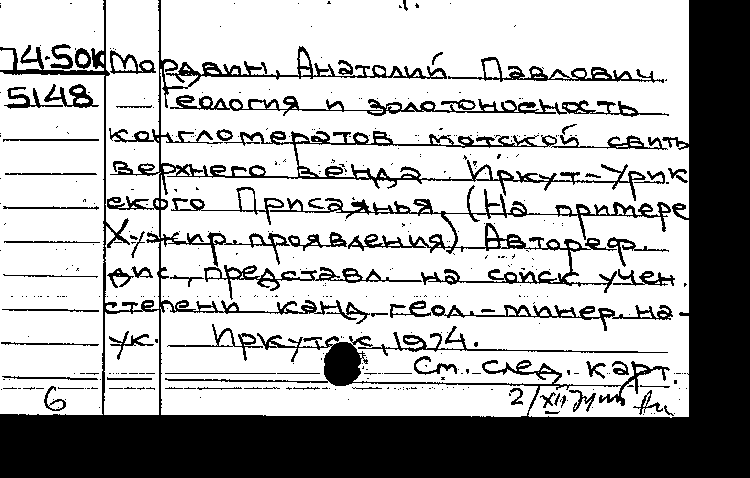 74-50к Мордвин, Анатолий Павлович
5148 Геология и золотоносность
конгломератов мотской свиты
верхнего венда Иркут-Урик
ского Присаянья. (На примере
Хужир. проявления). Автореф.
дис., представл. на соиск. учен.
степени канд. геол.-минер. на-
ук. Иркутск, 1974.
См. след. карт.
6 2/XII